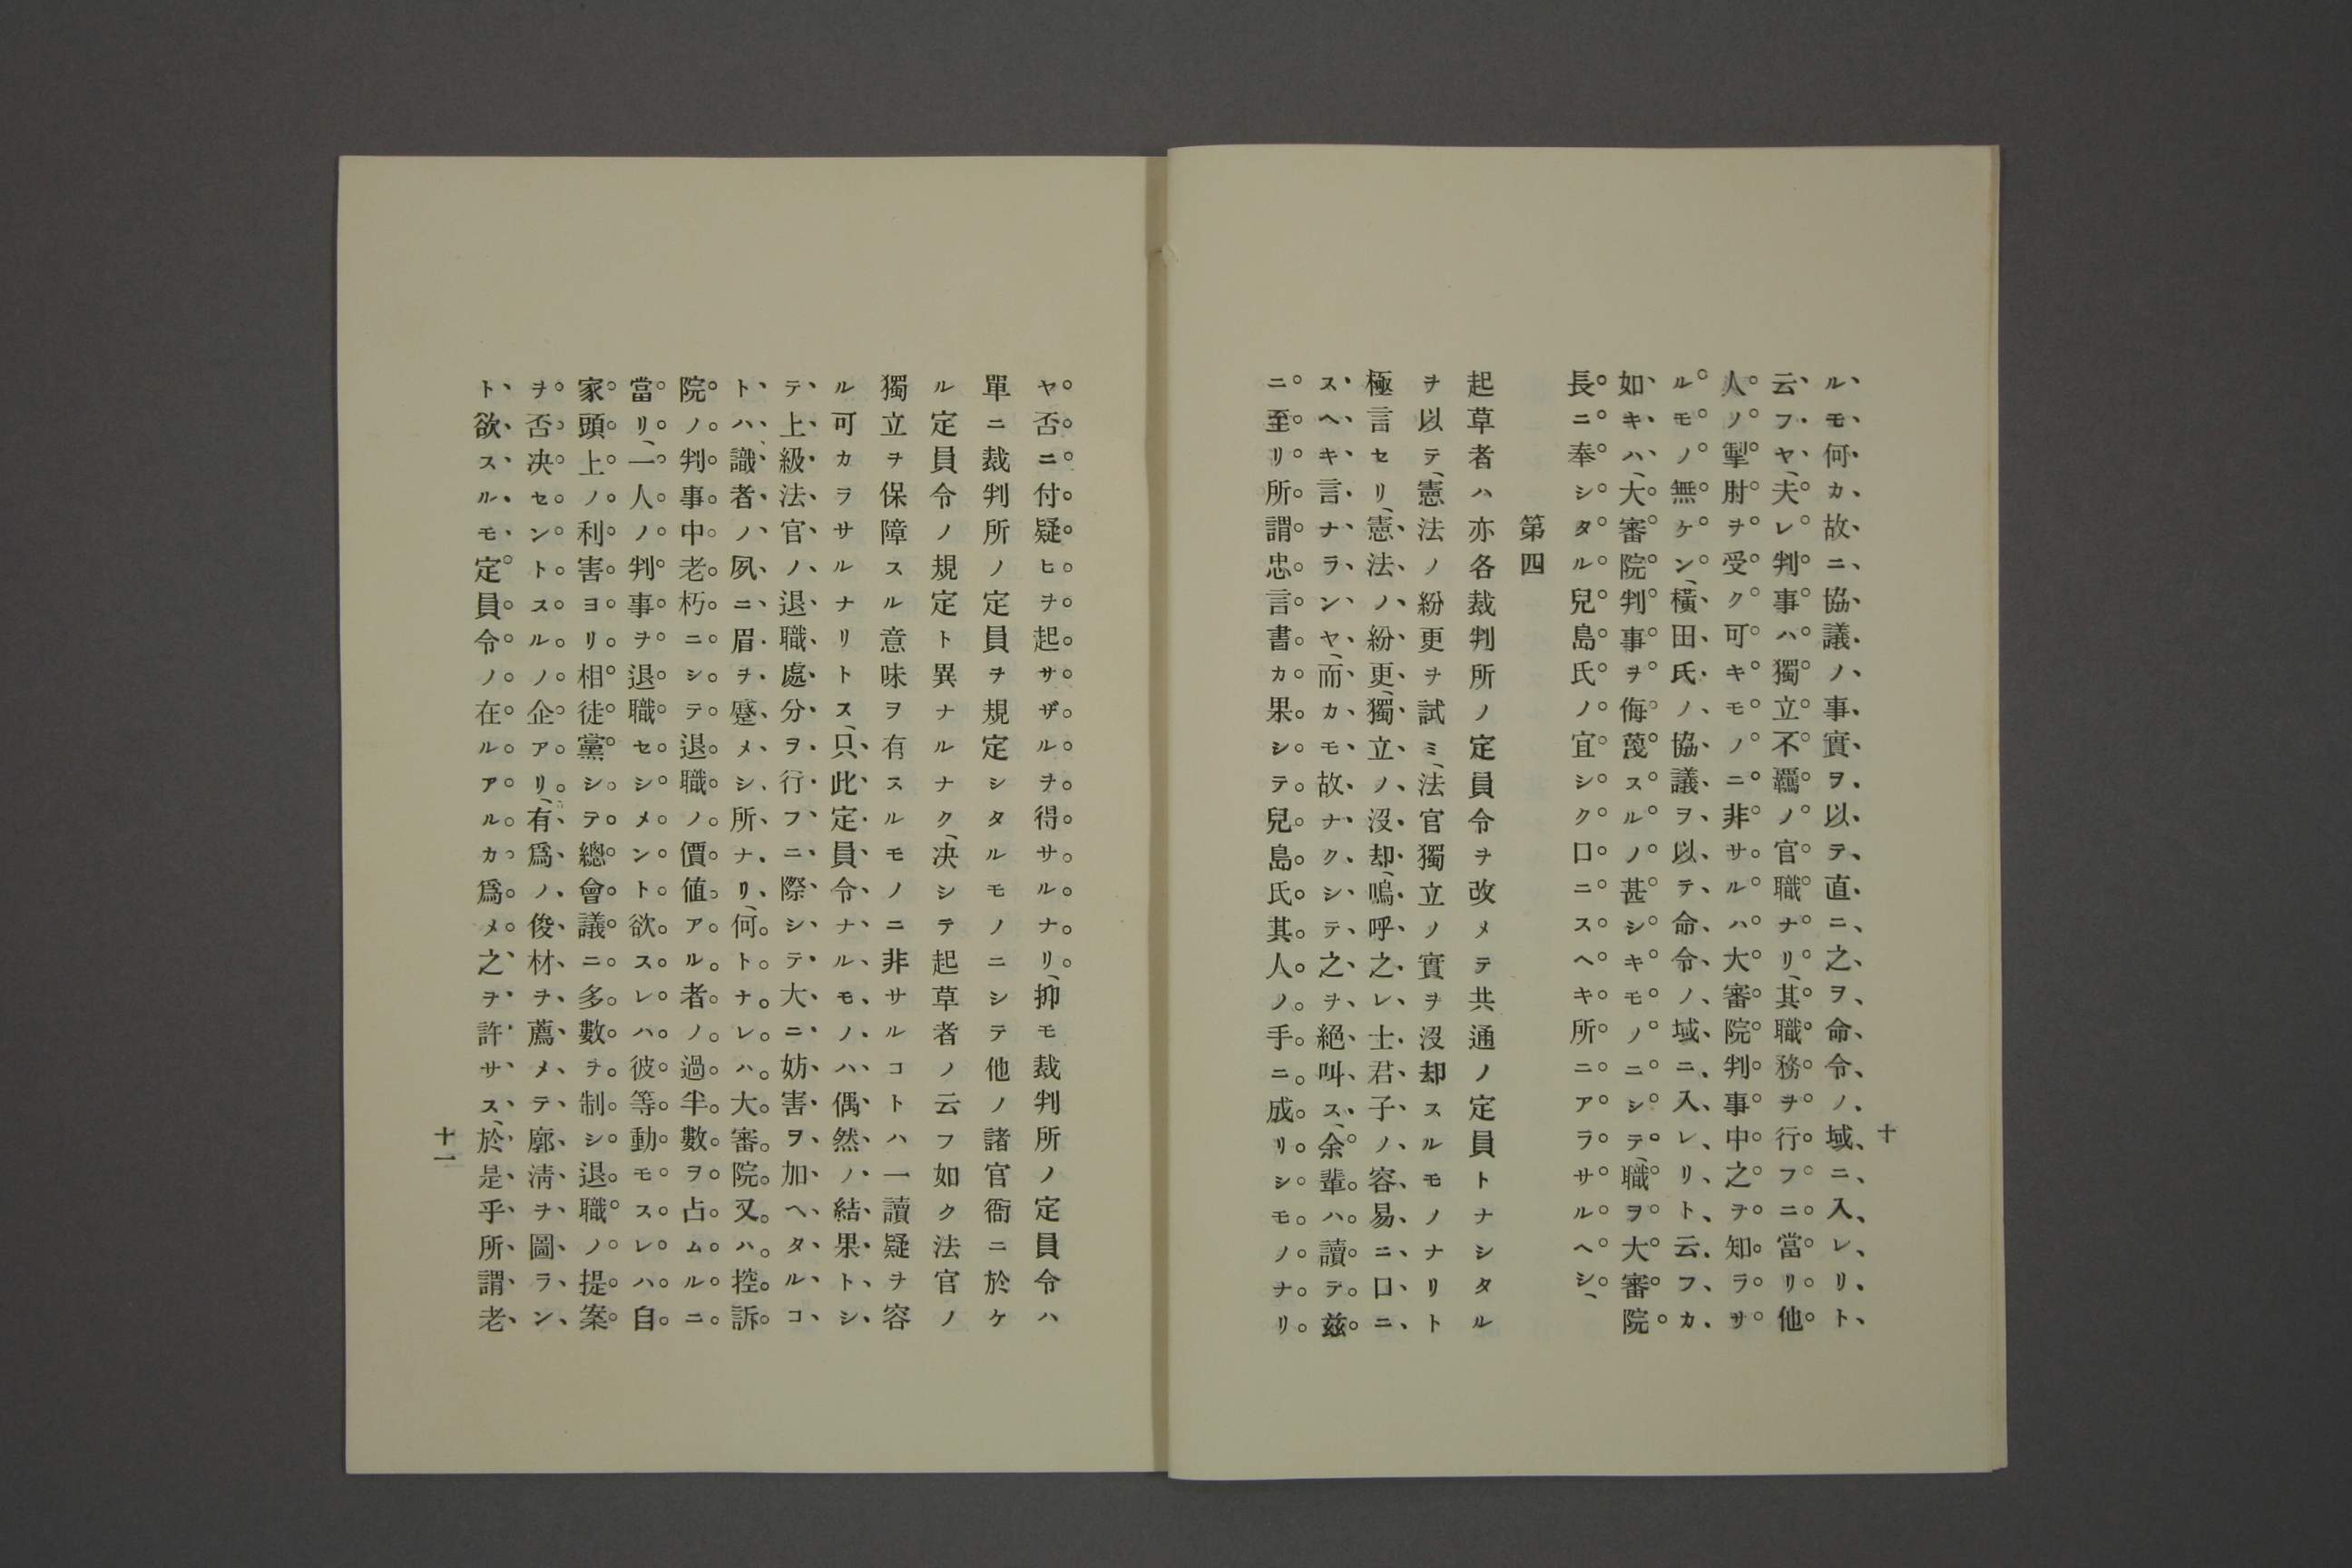 十
ルモ何カ故ニ協議ノ事實ヲ以テ直ニ之ヲ命令ノ域ニ入レリト
云フヤ、夫レ判事ハ獨立不羈ノ官職ナリ、其職務ヲ行フニ當リ他
人ノ掣肘ヲ受ク可キモノニ非サルハ大審院判事中之ヲ知ラサ
ルモノ無ケン、橫田氏ノ協議ヲ以テ命令ノ域ニ入レリト云フカ
如キハ、大審院判事ヲ侮蔑スルノ甚シキモノニシテ、職ヲ大審院
長ニ奉シタル兒島氏ノ宜シク口ニスヘキ所ニアラサルヘシ、
第四
起草者ハ亦各裁判所ノ定員令ヲ改メテ共通ノ定員トナシタル
ヲ以テ、憲法ノ紛更ヲ試ミ、法官獨立ノ實ヲ沒却スルモノナリト
極言セリ、憲法ノ紛更、獨立ノ沒却、嗚呼之レ士君子ノ容易ニ口ニ
スヘキ言ナランヤ、而カモ故ナクシテ之ヲ絕叫ス、余輩ハ讀テ玆
ニ至リ所謂忠言書カ果シテ兒島氏其人ノ手ニ成リシモノナリ
ヤ否ニ付疑ヒヲ起サザルヲ得サルナリ、抑モ裁判所ノ定員令ハ
單ニ裁判所ノ定員ヲ規定シタルモノニシテ他ノ諸官衙ニ於ケ
ル定員令ノ規定ト異ナルナク、決シテ起草者ノ云フ如ク法官ノ
獨立ヲ保障スル意味ヲ有スルモノニ非サルコトハ一讀疑ヲ容
ル可カラサルナリトス、只此定員令ナルモノハ偶然ノ結果トシ
テ上級法官ノ退職處分ヲ行フニ際シテ大ニ妨害ヲ加ヘタルコ
トハ、識者ノ夙ニ眉ヲ蹙メシ所ナリ、何トナレハ大審院又ハ控訴
院ノ判事中老朽ニシテ退職ノ價値アル者ノ過半數ヲ占ムルニ
當リ、一人ノ判事ヲ退職セシメント欲スレハ彼等動モスレハ自
家頭上ノ利害ヨリ相徒黨シテ總會議ニ多數ヲ制シ退職ノ提案
ヲ否決セントスルノ企アリ、有爲ノ俊材ヲ薦メテ廓淸ヲ圖ラン
ト欲スルモ定員令ノ在ルアルカ爲メ之ヲ許サス、於是乎所謂老
十一